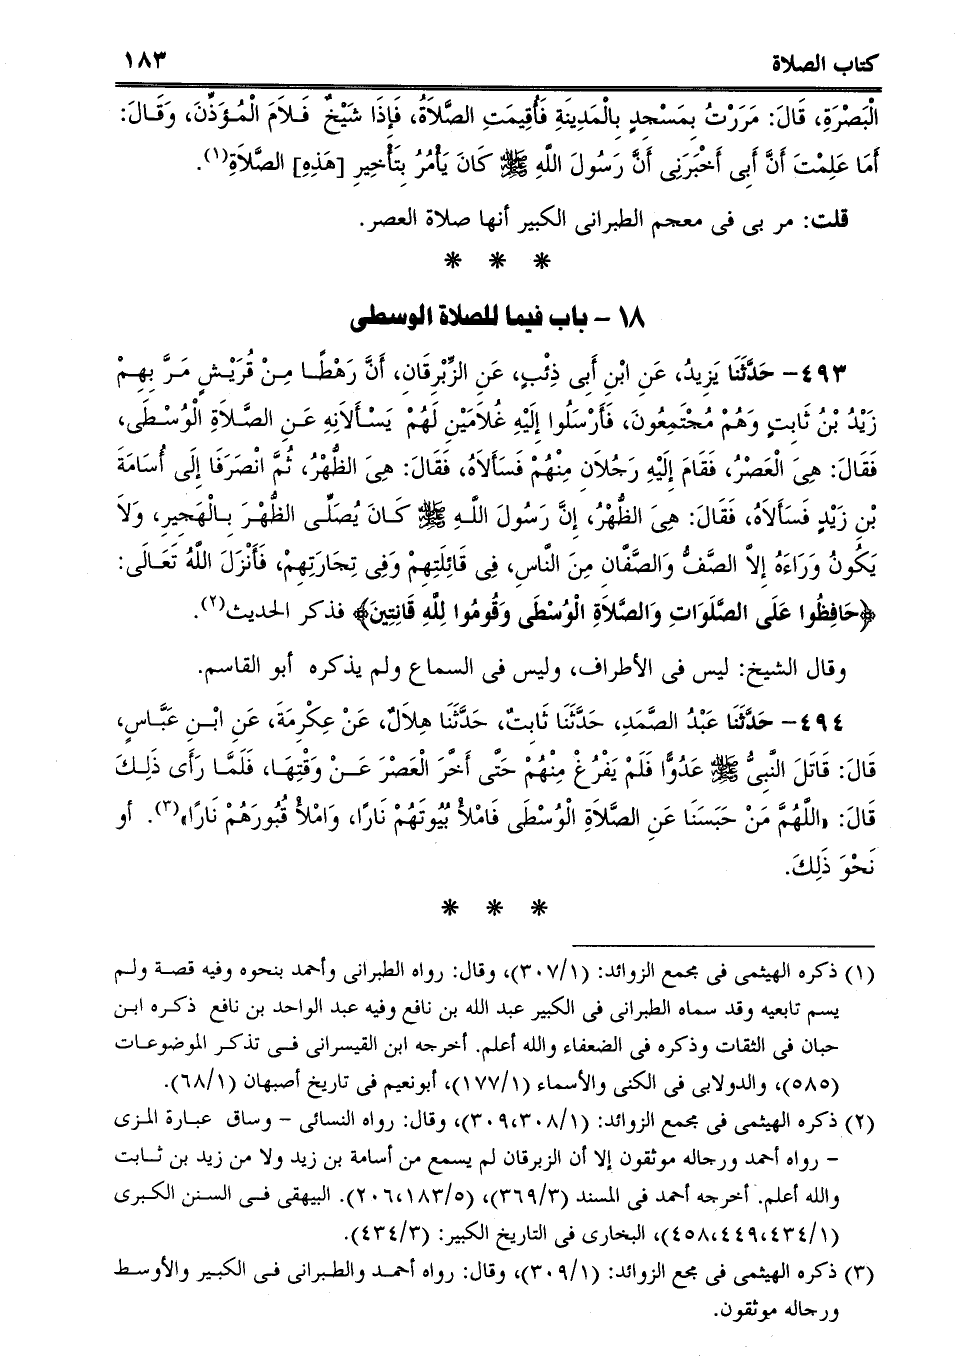 كتاب الصلاة ١٨٣
الْبَصْرَةِ، قَالَ: مَرَرْتُ بِمَسْجِدٍ بِالْمَدِينَةِ فَأُقِيمَتِ الصَّلاَةُ، فَإِذَا شَيْخٌ فَلاَمَ الْمُؤَذِّنَ، وَقَالَ:
أَمَا عَلِمْتَ أَنَّ أَبِى أَخْبَرَنِى أَنَّ رَسُولَ اللَّهِ ﷺ كَانَ يَأْمُرُ بِتَأْخِيرِ [هَذِهِ] الصَّلاَةِ(١).
قلت: مر بى فى معجم الطبرانى الكبير أنها صلاة العصر.
* * *
١٨ - باب فيما للصلاة الوسطى
٤٩٣- حَدَّثَنَا يَزِيدُ، عَنِ ابْنِ أَبِى ذِئْبٍ، عَنِ الزِّبْرِقَانِ، أَنَّ رَهْطًا مِنْ قُرَيْشٍ مَرَّ بِهِمْ
زَيْدُ بْنُ ثَابِتٍ وَهُمْ مُجْتَمِعُونَ، فَأَرْسَلُوا إِلَيْهِ غُلاَمَيْنِ لَهُمْ يَسْأَلاَنِهِ عَنِ الصَّلاَةِ الْوُسْطَى،
فَقَالَ: هِىَ الْعَصْرُ، فَقَامَ إِلَيْهِ رَجُلاَنِ مِنْهُمْ فَسَأَلاَهُ، فَقَالَ: هِىَ الظُّهْرُ، ثُمَّ انْصَرَفَا إِلَى أُسَامَةَ
بْنِ زَيْدٍ فَسَأَلاَهُ، فَقَالَ: هِىَ الظُّهْرُ، إِنَّ رَسُولَ اللَّهِ ﷺ كَانَ يُصَلِّى الظُّهْرَ بِالْهَجِيرِ، وَلاَ
يَكُونُ وَرَاءَهُ إِلاَّ الصَّفُّ وَالصَّفَّانِ مِنَ النَّاسِ، فِى قَائِلَتِهِمْ وَفِى تِجَارَتِهِمْ، فَأَنْزَلَ اللَّهُ تَعَالَى:
﴿حَافِظُوا عَلَى الصَّلَوَاتِ وَالصَّلاَةِ الْوُسْطَى وَقُومُوا لِلَّهِ قَانِتِينَ﴾ فذكر الحديث(٢).
وقال الشيخ: ليس فى الأطراف، وليس فى السماع ولم يذكره أبو القاسم.
٤٩٤- حَدَّثَنَا عَبْدُ الصَّمَدِ، حَدَّثَنَا ثَابتٌ، حَدَّثَنَا هِلاَلٌ، عَنْ عِكْرِمَةَ، عَنِ ابْنِ عَبَّاسٍ،
قَالَ: قَاتَلَ النَّبِىُّ ﷺ عَدُوًّا فَلَمْ يَفْرُغْ مِنْهُمْ حَتَّى أَخَّرَ الْعَصْرَ عَنْ وَقْتِهَا، فَلَمَّا رَأَى ذَلِكَ
قَالَ: «اللَّهُمَّ مَنْ حَبَسَنَا عَنِ الصَّلاَةِ الْوُسْطَى فَامْلأْ بُيُوتَهُمْ نَارًا، وَامْلأْ قُبُورَهُمْ نَارًا»(٣). أو
نَحْوَ ذَلِكَ.
* * *
(١) ذكره الهيثمى فى مجمع الزوائد: (٣٠٧/١)، وقال: رواه الطبرانى وأحمد بنحوه وفيه قصة ولم
يسم تابعيه وقد سماه الطبرانى فى الكبير عبد الله بن نافع وفيه عبد الواحد بن نافع ذكره ابن
حبان فى الثقات وذكره فى الضعفاء والله أعلم. أخرجه ابن القيسرانى فى تذكر الموضوعات
(٥٨٥)، والدولابى فى الكنى والأسماء (١٧٧/١)، أبونعيم فى تاريخ أصبهان (٦٨/١).
(٢) ذكره الهيثمى فى مجمع الزوائد: (٣٠٩،٣٠٨/١)، وقال: رواه النسائى - وساق عبارة المزى
- رواه أحمد ورجاله موثقون إلا أن الزبرقان لم يسمع من أسامة بن زيد ولا من زيد بن ثابت
والله أعلم. أخرجه أحمد فى المسند (٣٦٩/٣)، (٢٠٦،١٨٣/٥). البيهقى فى السنن الكبرى
(٤٥٨،٤٤٩،٤٣٤/١)، البخارى فى التاريخ الكبير: (٤٣٤/٣).
(٣) ذكره الهيثمى فى مجع الزوائد: (٣٠٩/١)، وقال: رواه أحمد والطبرانى فى الكبير والأوسط
ورجاله موثقون.